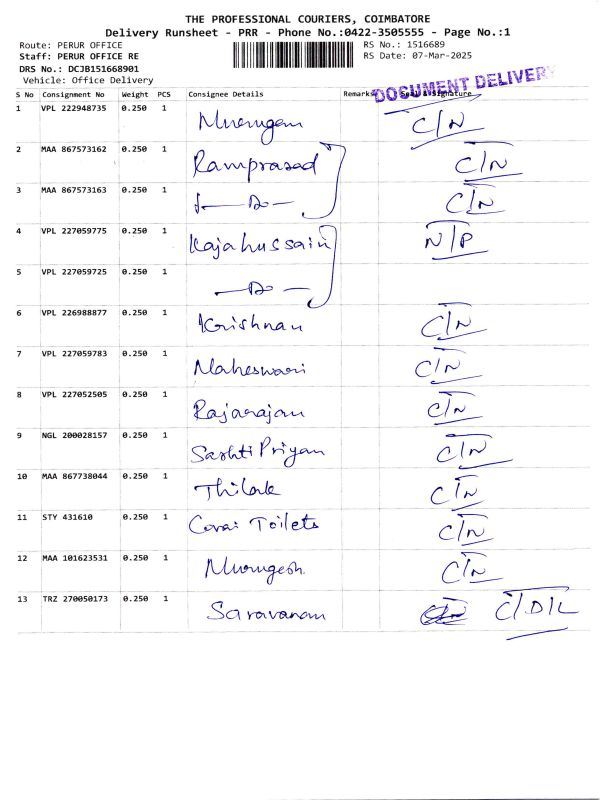 THE PROFESSIONAL COURIERS, COIMBATORE
Delivery Runsheet - PRR - Phone No.:0422-3505555 - Page No.:1
Route: PERUR OFFICE RS No.: 1516689
Staff: PERUR OFFICE RE RS Date: 07-Mar-2025
DRS No.: DCJB151668901
Vehicle: Office Delivery
DOCUMENT DELIVERY
S No Consignment No Weight PCS Consignee Details Remarks Seal & Signature
1 VPL 222948735 0.250 1 Murugan C/N
2 MAA 867573162 0.250 1 Ramprasad C/N
3 MAA 867573163 0.250 1 — Do — C/N
4 VPL 227059775 0.250 1 Kajahussain N/P
5 VPL 227059725 0.250 1 — Do —
6 VPL 226988877 0.250 1 Krishnan C/N
7 VPL 227059783 0.250 1 Maheswari C/N
8 VPL 227052505 0.250 1 Rajarajan C/N
9 NGL 200028157 0.250 1 Sashti Priyan C/N
10 MAA 867738044 0.250 1 Thilak C/N
11 STY 431610 0.250 1 Covai Toilets C/N
12 MAA 101623531 0.250 1 Murugesh C/N
13 TRZ 270050173 0.250 1 Saravanan C/D/L